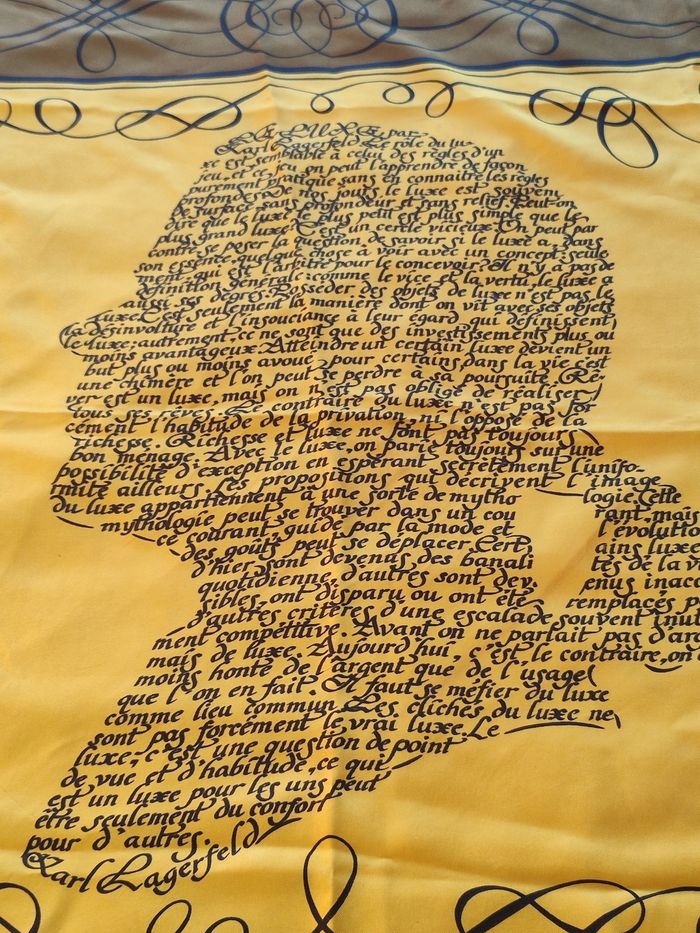 LE LUXE, par
Karl Lagerfeld Le rôle du lu-
xe est semblable à celui des règles d'un
jeu, et ce jeu on peut l'apprendre de façon
purement pratique sans en connaître les règles
profondes. De nos jours le luxe est souvent
de surface, sans profondeur et sans relief. Peut-on
dire que le luxe le plus petit est plus simple que le
plus grand luxe? C'est un cercle vicieux. On peut par
contre se poser la question de savoir si le luxe a, dans
son essence, quelque chose à voir avec un concept seule
ment, qui est l'arbitre pour le concevoir? Il n'y a pas de
définition générale: comme le vice et la vertu, le luxe a
aussi ses degrés. Posséder des objets de luxe n'est pas le
luxe. C'est seulement la manière dont on vit avec ses objets
la désinvolture et l'insouciance à leur égard, qui définissent
le luxe; autrement, ce ne sont que des investissements plus ou
moins avantageux. Atteindre un certain luxe devient un
but plus ou moins avoué, pour certains, dans la vie c'est
une chimère et l'on peut se perdre à sa poursuite. Rê-
ver est un luxe, mais on n'est pas obligé de réaliser
tous ses rêves. Le contraire du luxe n'est pas for
cément l'habitude de la privation, ni l'opposé de la
richesse. Richesse et luxe ne font pas toujours
bon ménage. Avec le luxe, on parie toujours sur une
possibilité d'exception en espérant secrètement l'unifo-
rmité ailleurs. Les propositions qui décrivent l'image
du luxe appartiennent à une sorte de mytho logie. Cette
mythologie peut se trouver dans un cou rant, mais
ce courant, guidé par la mode et l'évolution
des goûts, peut se déplacer. Cert ains luxe
d'hier sont devenus des banali tés de la vi
quotidienne, d'autres sont dev. enus inacc
sibles, ont disparu ou ont été remplacés p
d'autres critères d'une escalade souvent inut
ment compétitive. Avant on ne parlait pas d'ar
mais de luxe. Aujourd'hui, c'est le contraire, on
moins honte de l'argent que de l'usage
que l'on en fait. Il faut se méfier du luxe
comme lieu commun. Les clichés du luxe ne
sont pas forcément le vrai luxe. Le
luxe, c'est une question de point
de vue et d'habitude, ce qui
est un luxe pour les uns peut
être seulement du confort
pour d'autres.
Karl Lagerfeld